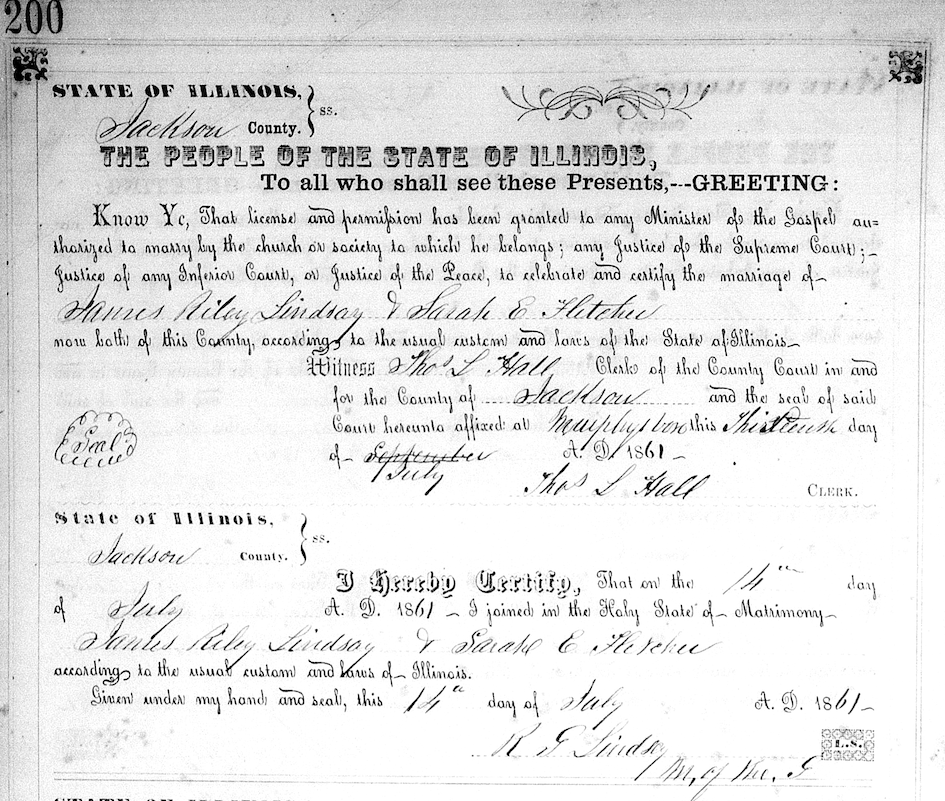 200
STATE OF ILLINOIS,
Jackson County. } ss.
THE PEOPLE OF THE STATE OF ILLINOIS,
To all who shall see these Presents,---GREETING:
Know Ye, That license and permission has been granted to any Minister of the Gospel au-
thorized to marry by the church or society to which he belongs; any Justice of the Supreme Court;-
Justice of any Inferior Court, or Justice of the Peace, to celebrate and certify the marriage of-
James Riley Lindsay & Sarah E Fletcher
now both of this County, according to the usual custom and laws of the State of Illinois-
Witness Thos L Hall Clerk of the County Court in and
for the County of Jackson and the seal of said
Seal
Court hereunto affixed at Murphysboro this Thirteenth day
of- September A. D. 1861-
July
Thos L Hall CLERK.
State of Illinois,
Jackson County. } ss.
I Hereby Certify, That on the 14th day
of July A. D. 1861- I joined in the Holy State of- Matrimony-
James Riley Lindsay & Sarah E Fletcher
according to the usual custom and laws of- Illinois.
Given under my hand and seal, this 14th day of July A. D. 1861-
L.S.
M, of the. G
STATE OF ILLINOIS